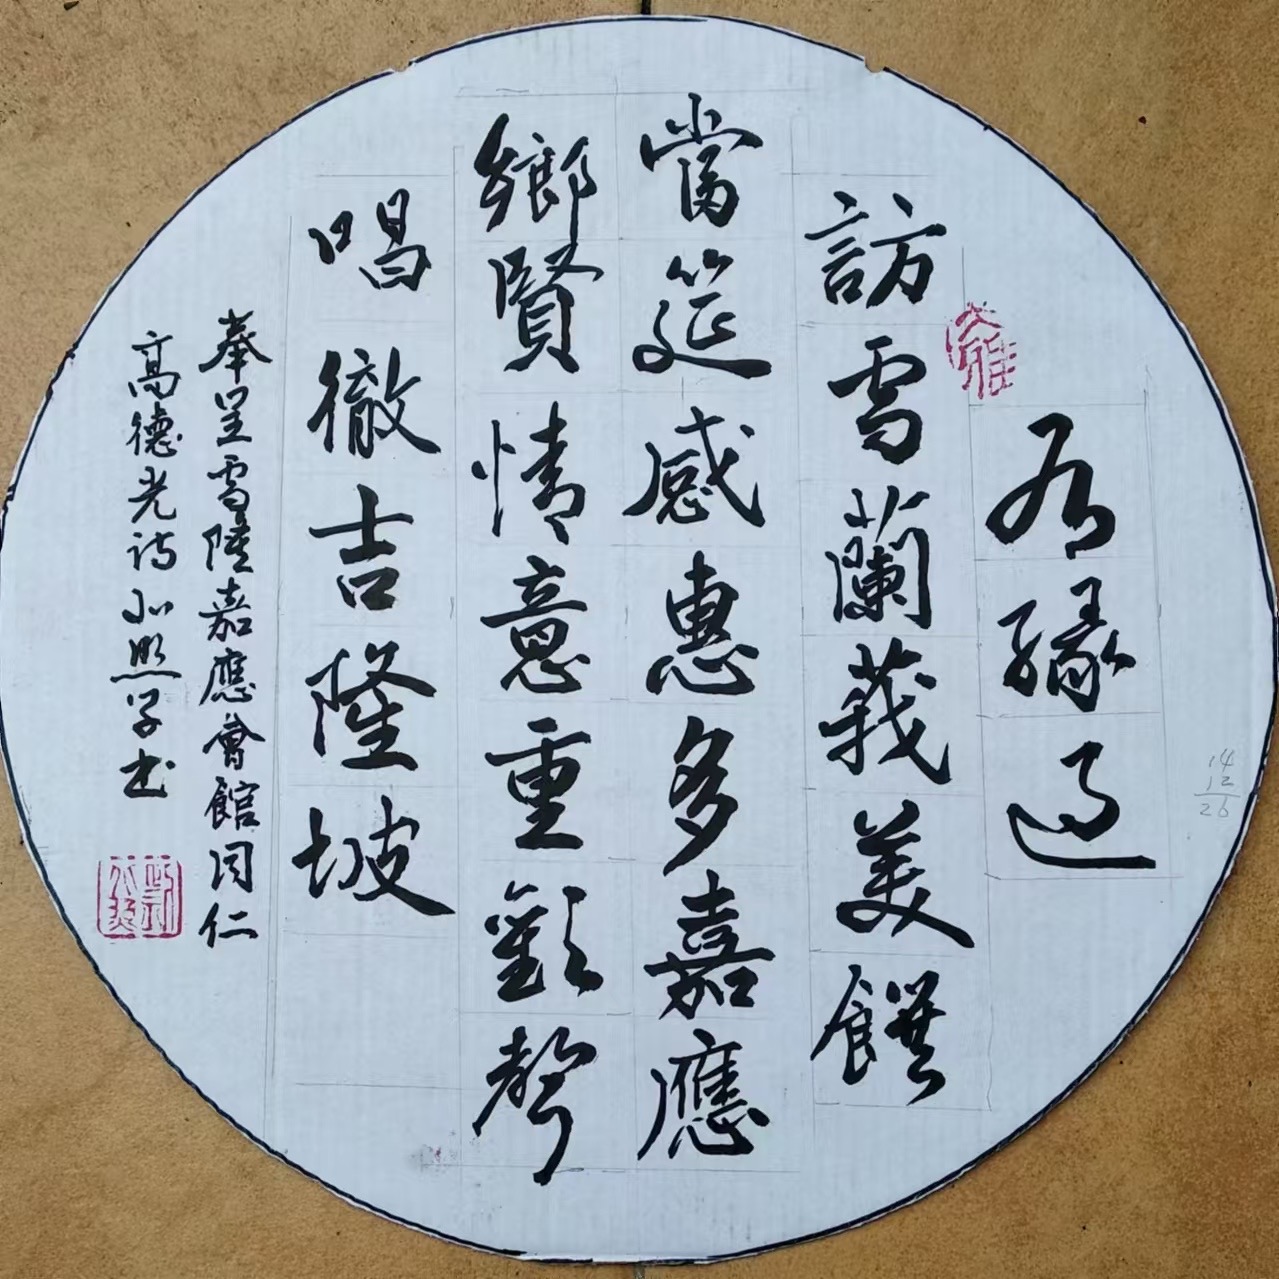 有緣過
訪雪蘭莪美饌
當筵感惠多嘉應
鄉賢情意重歡聲
唱徹吉隆坡
奉呈雪隆嘉應會館同仁
高德光詩 照學書
14
12
26